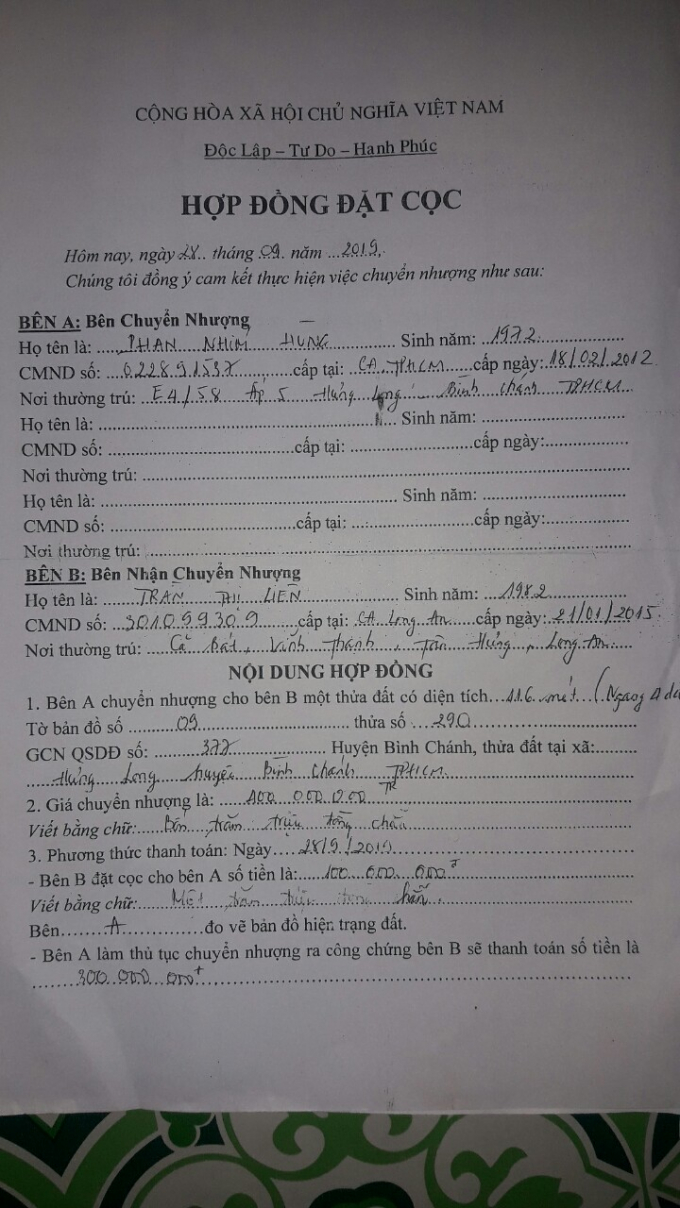 CỘNG HÒA XÃ HỘI CHỦ NGHĨA VIỆT NAM
Độc Lập – Tự Do – Hạnh Phúc
HỢP ĐỒNG ĐẶT CỌC
Hôm nay, ngày 28.. tháng 09. năm ...2019..
Chúng tôi đồng ý cam kết thực hiện việc chuyển nhượng như sau:
BÊN A: Bên Chuyển Nhượng
Họ tên là: PHAN NHIM HUNG Sinh năm: 1972
CMND số: 022891537 cấp tại: CA TPHCM cấp ngày: 18/02/2012
Nơi thường trú: E4/58 Ấp 5 Hưng Long Bình Chánh TPHCM
Họ tên là: ........ Sinh năm: ........
CMND số: ........ cấp tại: ........ cấp ngày: ........
Nơi thường trú: ........
Họ tên là: ........ Sinh năm: ........
CMND số: ........ cấp tại: ........ cấp ngày: ........
Nơi thường trú: ........
BÊN B: Bên Nhận Chuyển Nhượng
Họ tên là: TRẦN THỊ LIÊN Sinh năm: 1982
CMND số: 301099309 cấp tại: CA Long An cấp ngày: 21/01/2015
Nơi thường trú: Cả Bát, Vĩnh Thạnh, Tân Hưng, Long An
NỘI DUNG HỢP ĐỒNG
1. Bên A chuyển nhượng cho bên B một thửa đất có diện tích 116 mét (Ngang 4
Tờ bản đồ số 09 thửa số 290
GCN QSDĐ số: 377 Huyện Bình Chánh, thửa đất tại xã:
Hưng Long huyện Bình Chánh TPHCM
2. Giá chuyển nhượng là: 400 000 000
Viết bằng chữ: Bốn trăm triệu đồng chẵn
3. Phương thức thanh toán: Ngày 28/9/2019
- Bên B đặt cọc cho bên A số tiền là: 100.000.000
Viết bằng chữ: Một trăm triệu đồng chẵn
Bên A đo vẽ bản đồ hiện trạng đất.
- Bên A làm thủ tục chuyển nhượng ra công chứng bên B sẽ thanh toán số tiền là
300.000.000